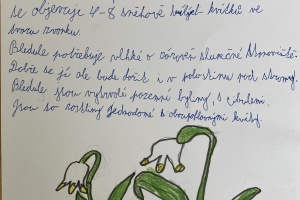 se objevuje 4-8 sněhově kvítků ve
tvaru zvonku.
Bledule potřebuje vlhké a zároveň slunečné stanoviště.
Dobře se jí ale bude dařit i v polostínu pod stromy.
Bledule jsou vytrvalé pozemní byliny, s cibulemi.
Jsou to rostliny jednodomé s oboupohlavnými květy.